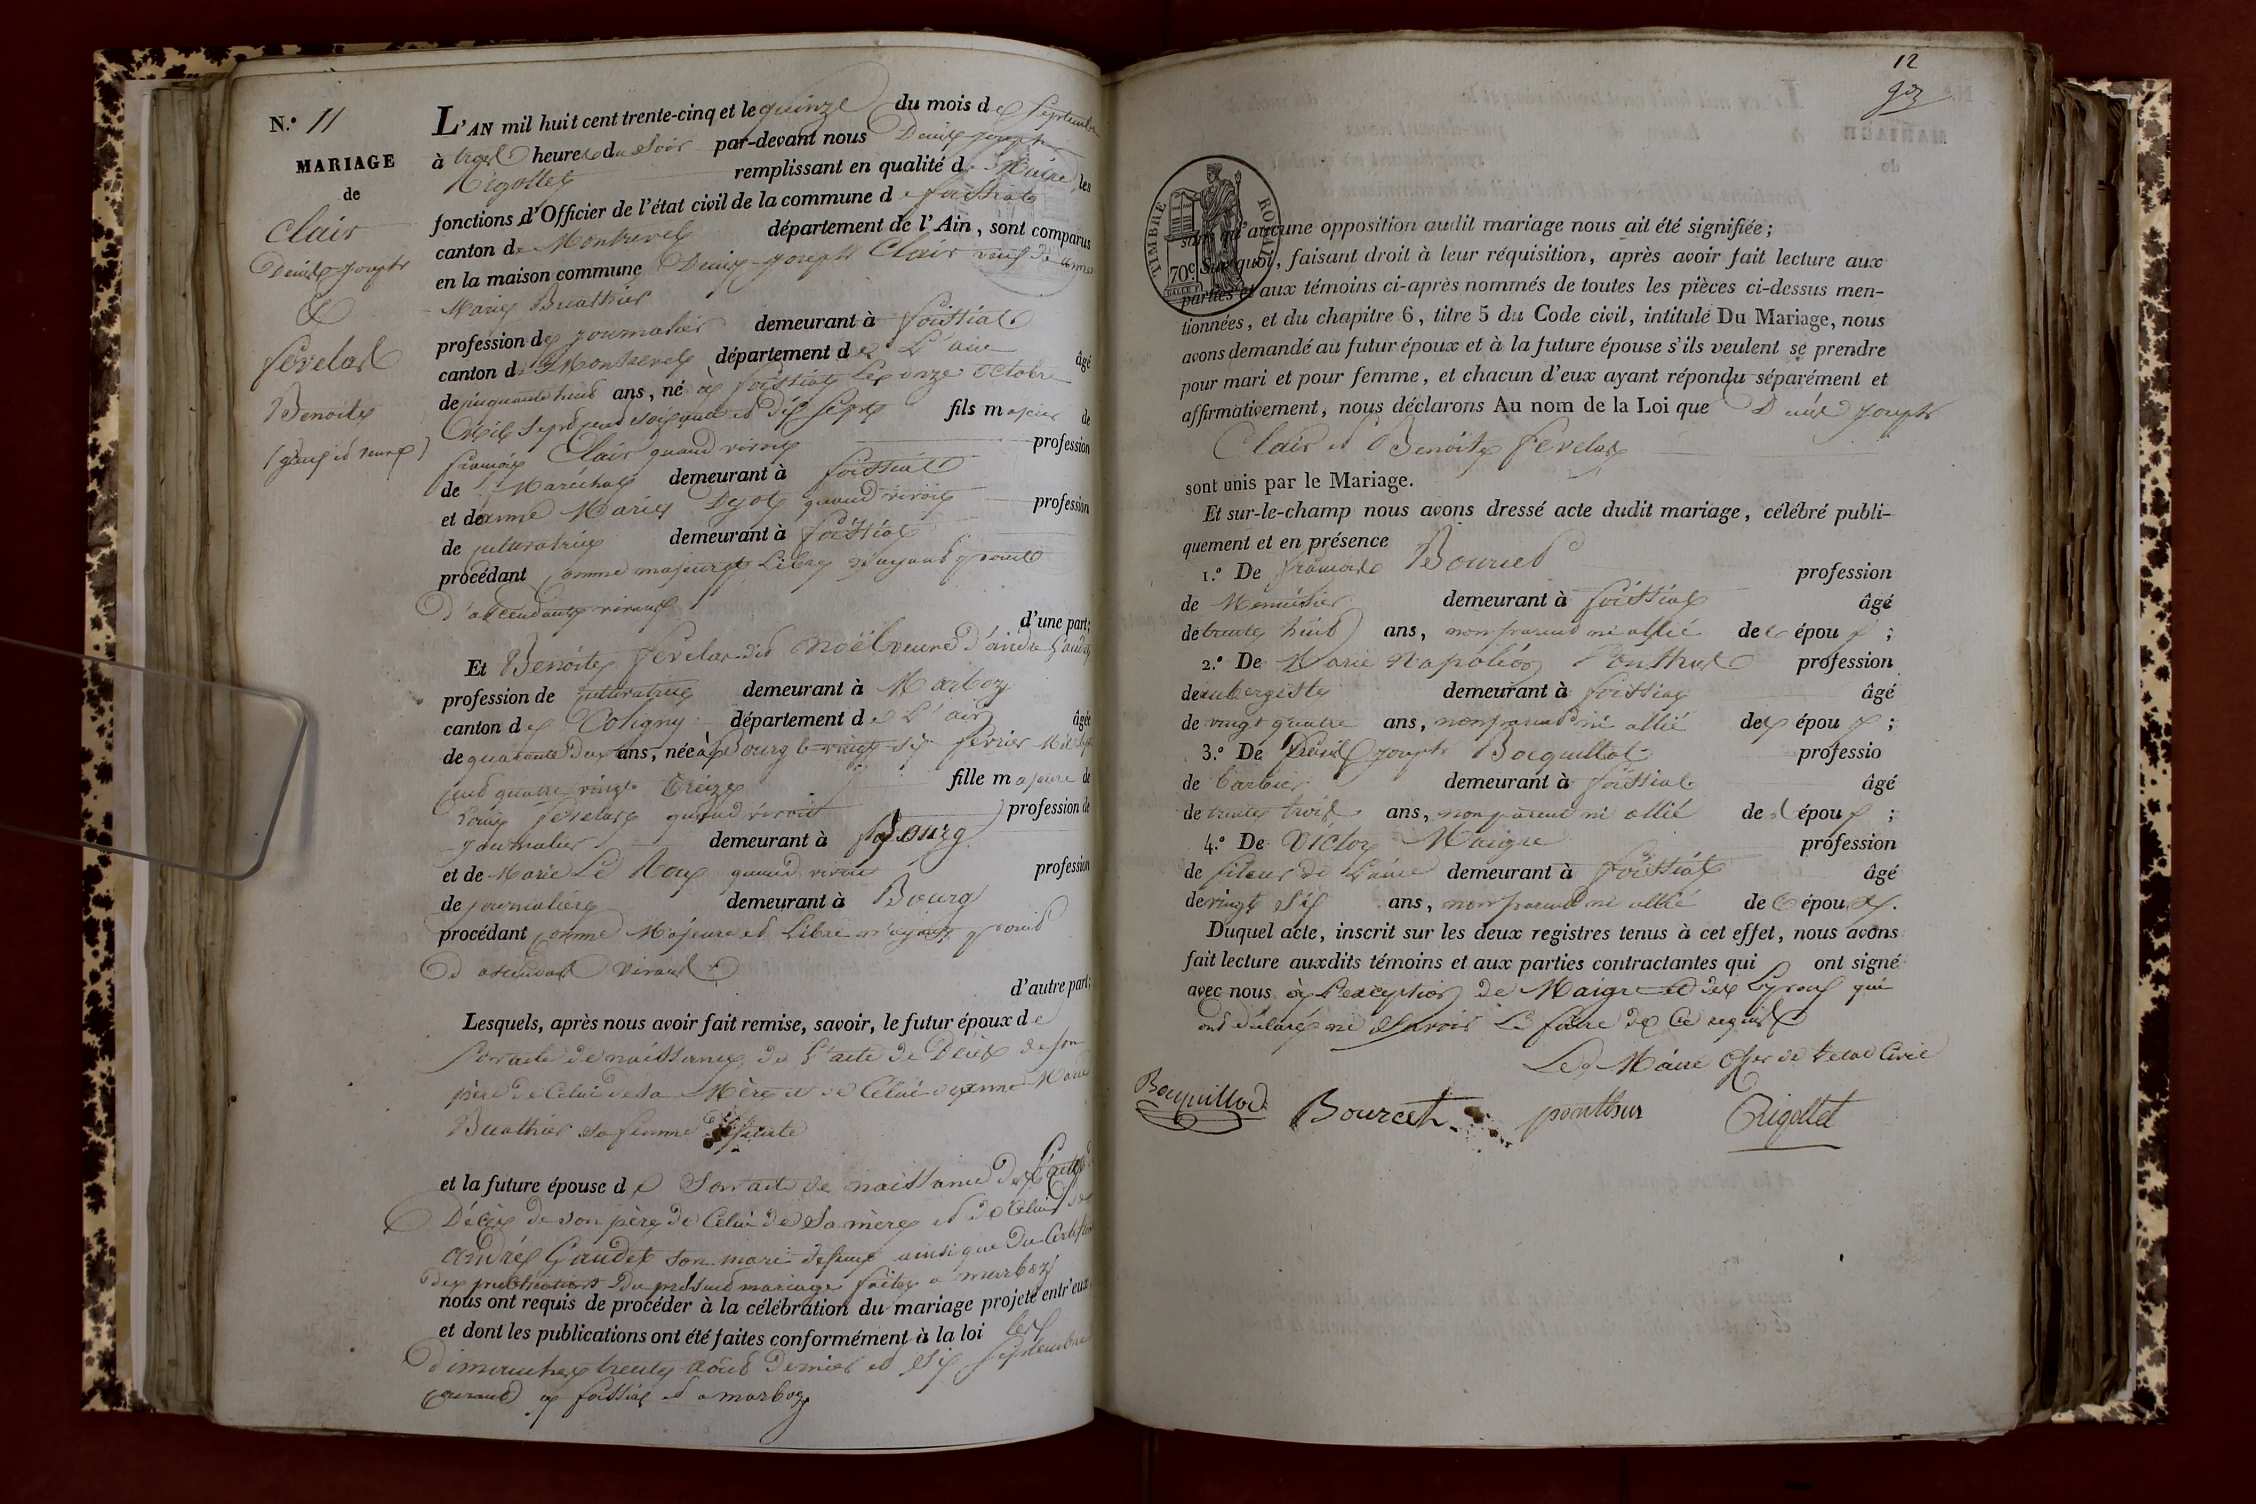 N.º 11
MARIAGE
de
Clair
Denis Joseph
&
Ferelas
Benoite
L'AN mil huit cent trente-cinq et le quinze du mois de Septembre
à trois heures du Soir par-devant nous Denis Joseph
Rigollet remplissant en qualité de Maire les
fonctions d'Officier de l'état civil de la commune de foissiat
canton de Montrevel département de l'Ain, sont comparus
en la maison commune Denis-Joseph Clair veuf de anne
Marie Buathier
profession de journalier demeurant à foissiat
canton de Montrevel département de L'ain âgé
de cinquante huit ans, né à foissiat le onze octobre
mil sept cent soixante et dix sept fils majeur de
françois Clair quand vivoit profession
de Maréchal demeurant à foissiat
et de anne Marie quand vivoit profession
de cultivatrice demeurant à foissiat
procédant comme majeur et libre n'ayant point
d'ascendants vivants
d'une part;
Et Benoite Ferelas dit Noël veuve d'andré Gaudet
profession de cultivatrice demeurant à Marboz
canton de Coligny département de L'ain âgée
de quarante deux ans, née à Bourg le vingt six février mil sept
cent quatre vingt treize fille majeure de
Louis Ferelas quand vivoit profession de
journalier demeurant à Bourg
et de Marie Le Roux quand vivoit profession
de journalière demeurant à Bourg
procédant comme Majeure et Libre n'ayant point
d'ascendant vivant
d'autre part;
Lesquels, après nous avoir fait remise, savoir, le futur époux de
Son acte de naissance, de L'acte de Décès de son
père de Celui de sa Mère et de Celui d'anne Marie
Buathier sa femme défunte
et la future épouse de Son acte de naissance de L'acte de
Décès de son père de Celui de Sa mère et de Celui de
andré Gaudet son mari défunt ainsi que du Certificat
des publications du présent mariage faites à marboz
nous ont requis de procéder à la célébration du mariage projeté entr'eux
et dont les publications ont été faites conformément à la loi les
dimanches trente août dernier et six septembre
courant à foissiat et a marboz
12
TIMBRE ROYAL
70c
sans qu'aucune opposition audit mariage nous ait été signifiée;
Sur quoi, faisant droit à leur réquisition, après avoir fait lecture aux
parties et aux témoins ci-après nommés de toutes les pièces ci-dessus men-
tionnées, et du chapitre 6, titre 5 du Code civil, intitulé Du Mariage, nous
avons demandé au futur époux et à la future épouse s'ils veulent se prendre
pour mari et pour femme, et chacun d'eux ayant répondu séparément et
affirmativement, nous déclarons Au nom de la Loi que Denis Joseph
Clair et Benoite Ferelas
sont unis par le Mariage.
Et sur-le-champ nous avons dressé acte dudit mariage, célébré publi-
quement et en présence
1.º De françois Bourcet profession
de Menuisier demeurant à foissiat âgé
de trente huit ans, non parent ni allié des époux;
2.º De Marie Napoléon Ponthus profession
d'aubergiste demeurant à foissiat âgé
de vingt quatre ans, non parent ni allié des époux;
3.º De Denis Joseph Bocquillot professio
de barbier demeurant à foissiat âgé
de trente trois ans, non parent ni allié des époux;
4.º De Victor Maigre profession
de fileur de Laine demeurant à foissiat âgé
de vingt six ans, non parent ni allié des époux.
Duquel acte, inscrit sur les deux registres tenus à cet effet, nous avons
fait lecture auxdits témoins et aux parties contractantes qui ont signé
avec nous à L'exception de Maigre et des Epoux qui
ont déclaré ne Savoir Le faire de Ce requis
Le Maire Offer de L'etat Civil
Bocquillod Bourcet ponthus Rigollet